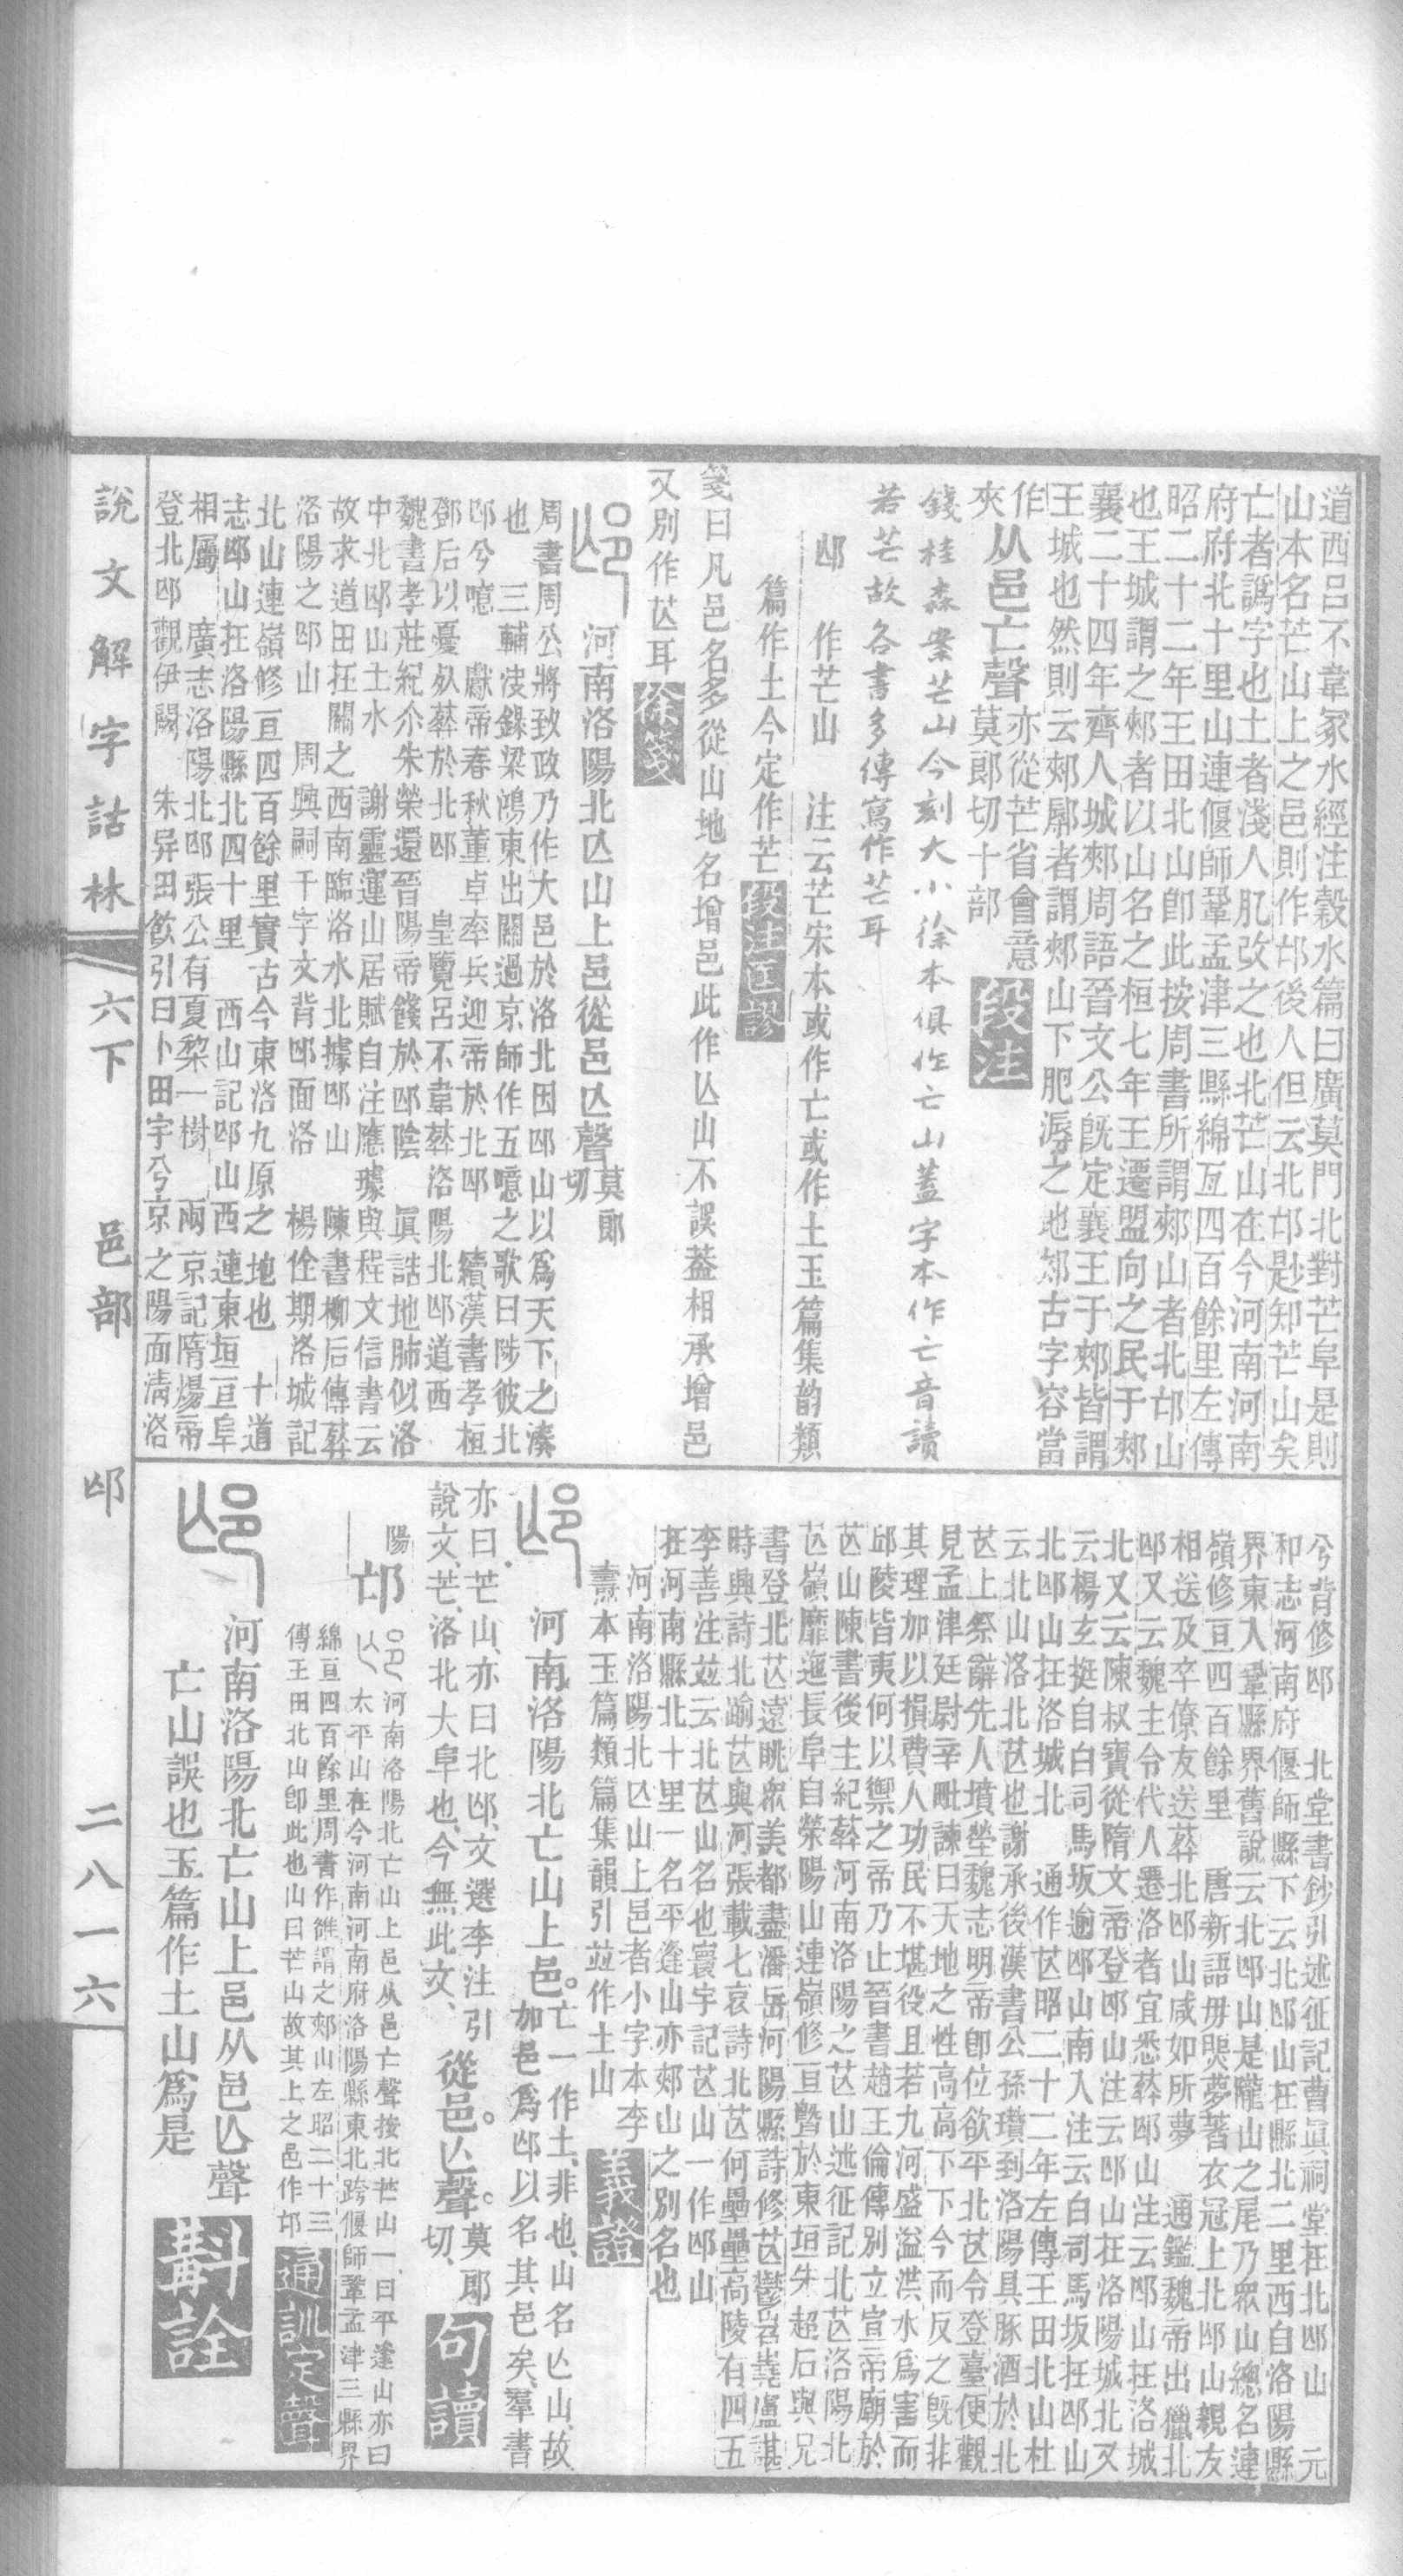 道西呂不韋冢水經注穀水篇曰廣莫門北對芒阜是則
山本名芒山上之邑則作邙後人但云北邙尟知芒山矣
亡者譌字也土者淺人肊改之也北芒山在今河南河南
府府北十里山連偃師鞏孟津三縣綿亙四百餘里左傳
昭二十二年王田北山卽此按周書所謂郟山者北邙山
也王城謂之郟者以山名之桓七年王遷盟向之民于郟
襄二十四年齊人城郟周語晉文公旣定襄王于郟皆謂
王城也然則云郟鄏者謂郟山下肥溽之地郟古字容當
作夾从邑亡聲亦從芒省會意莫郎切十部段注
錢桂森案芒山今刻大小徐本俱作亡山蓋字本作亡音讀
若芒故各書多傳寫作芒耳
邙 作芒山 注云芒宋本或作亡或作土玉篇集韵類
篇作土今定作芒段注匡謬
箋曰凡邑名多從山地名增邑此作亾山不誤葢相承增邑
又別作𦬆耳徐箋
河南洛陽北亾山上邑從邑亾聲莫郎切
周書周公將致政乃作大邑於洛北因邙山以爲天下之湊
也 三輔決錄梁鴻東出關過京師作五噫之歌曰陟彼北
邙兮噫 獻帝春秋董卓率兵迎帝於北邙 續漢書孝桓
鄧后以憂死葬於北邙 皇覽呂不韋葬洛陽北邙道西
魏書孝莊紀尒朱榮還晉陽帝餞於邙陰 眞誥地肺似洛
中北邙山土水 謝靈運山居賦自注應璩與程文信書云
故求道田在關之西南臨洛水北據邙山 陳書柳后傳葬
洛陽之邙山 周興嗣千字文背邙面洛 楊佺期洛城記
北山連嶺修亘四百餘里實古今東洛九原之地也 十道
志邙山在洛陽縣北四十里 西山記邙山西連東垣亘阜
相屬 廣志洛陽北邙張公有夏棃一樹 兩京記隋煬帝
登北邙觀伊闕 朱异田飲引曰卜田宇兮京之陽面清洛
兮背修邙 北堂書鈔引述征記曹眞祠堂在北邙山 元
和志河南府偃師縣下云北邙山在縣北二里西自洛陽縣
界東入鞏縣界舊說云北邙山是隴山之尾乃眾山總名連
嶺修亘四百餘里 唐新語毋煚夢著衣冠上北邙山親友
相送及卒僚友送葬北邙山咸如所夢 通鑑魏帝出獵北
邙又云魏主令代人遷洛者宜悉葬邙山注云邙山在洛城
北又云陳叔寶從隋文帝登邙山注云邙山在洛陽城北又
云楊玄挺自白司馬坂逾邙山南入注云白司馬坂在邙山
北邙山在洛城北 通作𦬆昭二十二年左傳王田北山杜
云北山洛北𦬆也謝承後漢書公孫瓚到洛陽具豚酒於北
𦬆上祭辭先人墳塋魏志明帝卽位欲平北𦬆令登臺便觀
見孟津廷尉辛毗諫曰天地之性高高下下今而反之旣非
其理加以損費人功民不堪役且若九河盛溢洪水爲害而
邱陵皆夷何以禦之帝乃止晉書趙王倫傳別立宣帝廟於
𦬆山陳書後主紀葬河南洛陽之𦬆山述征記北𦬆洛陽北
𦬆嶺靡迤長阜自滎陽山連嶺修亘曁於東垣朱超石與兄
書登北𦬆遠眺眾美都盡潘岳河陽縣詩修𦬆鬱岧嶤盧諶
時興詩北踰𦬆與河張載七哀詩北𦬆何壘壘高陵有四五
李善注竝云北𦬆山名也寰宇記𦬆山一作邙山
在河南縣北十里一名平逢山亦郟山之別名也
河南洛陽北亾山上邑者小字本李
燾本玉篇類篇集韻引竝作土山義證
河南洛陽北亡山上邑。亡一作土、非也、山名亾山、故
加邑爲邙以名其邑矣、羣書
亦曰芒山、亦曰北邙、文選李注引
說文、芒、洛北大阜也、今無此文、從邑。亾聲。莫郎切、句讀
陽
邙 河南洛陽北亡山上邑从邑亡聲按北芒山一曰平逢山亦曰
太平山在今河南河南府洛陽縣東北跨偃師鞏孟津三縣界
綿亘四百餘里周書作雒謂之郟山左昭二十三
傳王田北山卽此也山曰芒山故其上之邑作邙通訓定聲
河南洛陽北亡山上邑从邑亾聲
亡山誤也玉篇作土山爲是斠詮
說文解字詁林 六下 邑部 邙 二八一六